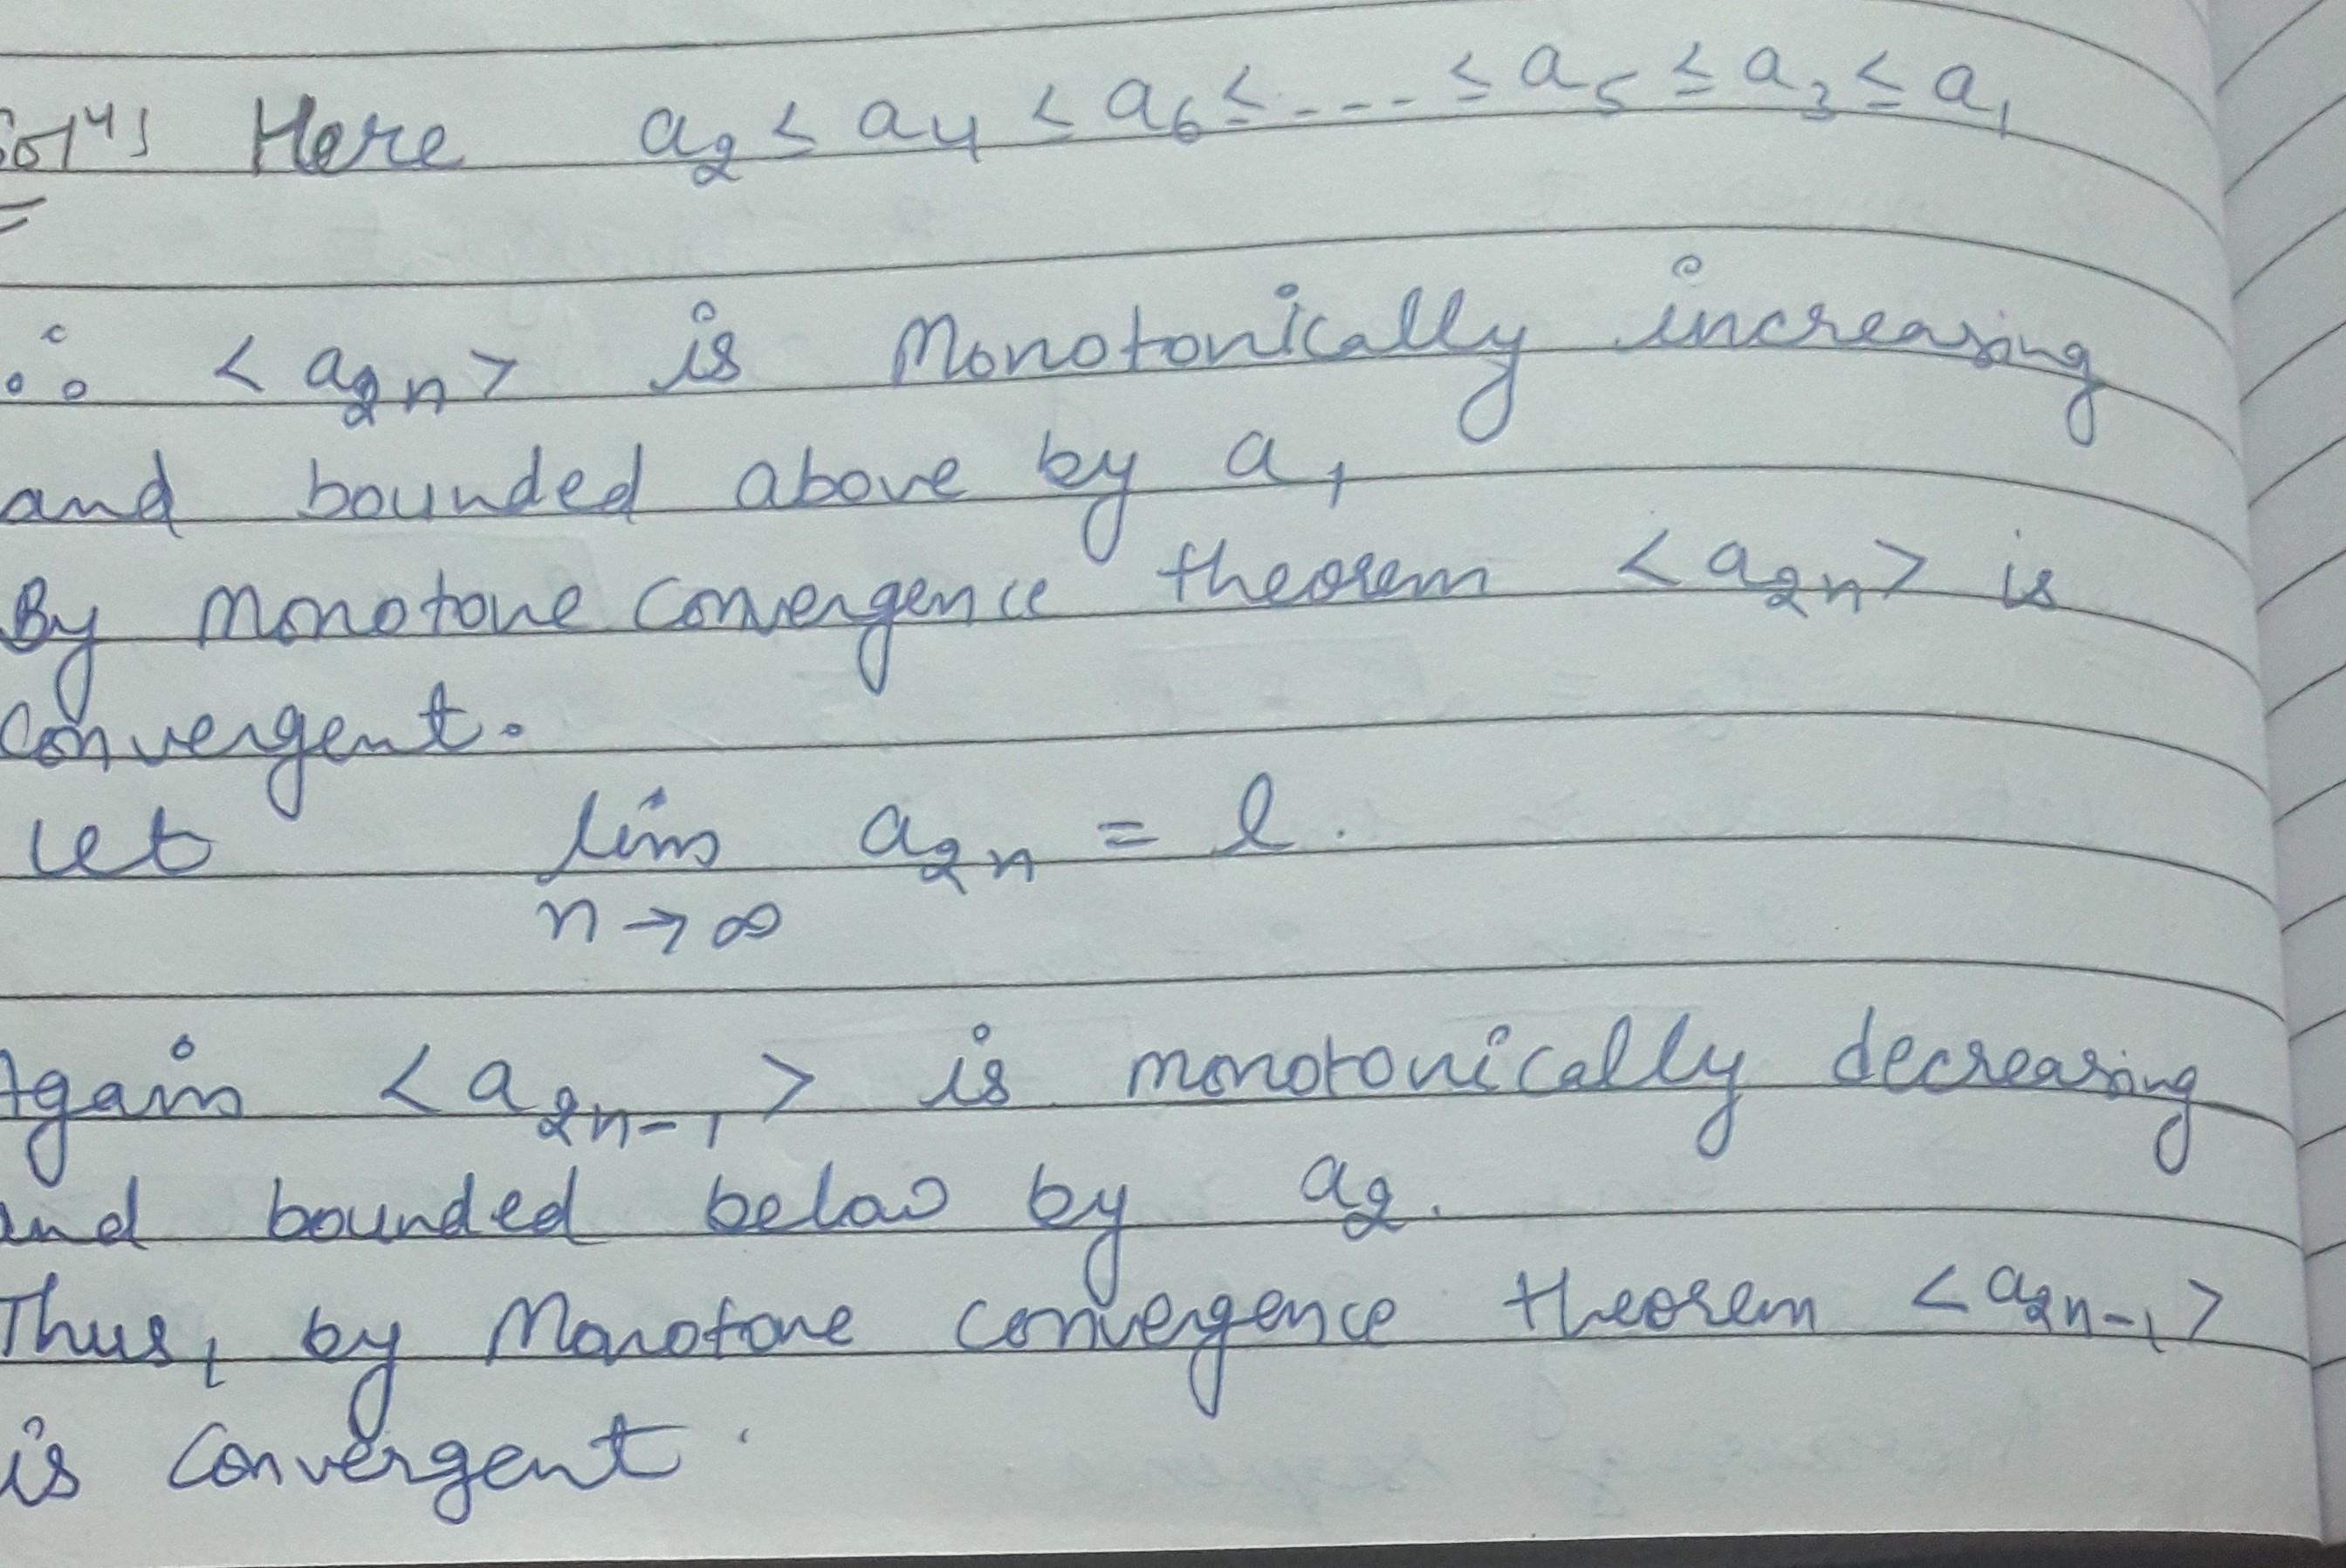 Solⁿ: Here a₂ ≤ a₄ ≤ a₆ ≤ .... ≤ a₅ ≤ a₃ ≤ a₁
∴ <a₂ₙ> is Monotonically increasing
and bounded above by a₁
By monotone convergence theorem <a₂ₙ> is
convergent.
Let lim a₂ₙ = l.
n→∞
Again <a₂ₙ₋₁> is monotonically decreasing
and bounded below by a₂.
Thus, by Monotone convergence theorem <a₂ₙ₋₁>
is convergent.